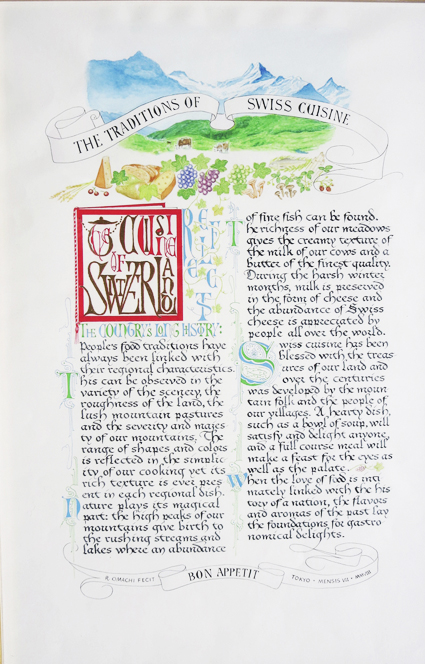 THE TRADITIONS OF SWISS CUISINE
THE CUISINE
OF
SWITZERLAND
REFLECTS
THE COUNTRY'S LONG HISTORY:
People's food traditions have
always been linked with
their regional characteristics.
This can be observed in the
variety of the scenery, the
roughness of the land, the
lush mountain pastures
and the severity and majes
ty of our mountains. The
range of shapes and colors
is reflected in the simplic
ity of our cooking yet its
rich texture is ever pres
ent in each regional dish.
Nature plays its magical
part: the high peaks of our
mountains give birth to
the rushing streams and
lakes where an abundance
of fine fish can be found.
The richness of our meadows
gives the creamy texture of
the milk of our cows and a
butter of the finest quality.
During the harsh winter
months, milk is preserved
in the form of cheese and
the abundance of Swiss
cheese is appreciated by
people all over the world.
Swiss cuisine has been
blessed with the treas
ures of our land and
over the centuries
was developed by the moun
tain folk and the people of
our villages. A hearty dish,
such as a bowl of soup, will
satisfy and delight anyone,
and a full course meal will
make a feast for the eyes as
well as the palate.
When the love of food is inti
mately linked with the his
tory of a nation, the flavors
and aromas of the past lay
the foundations for gastro
nomical delights.
R. OMACHI FECIT BON APPETIT TOKYO • MENSIS VII •